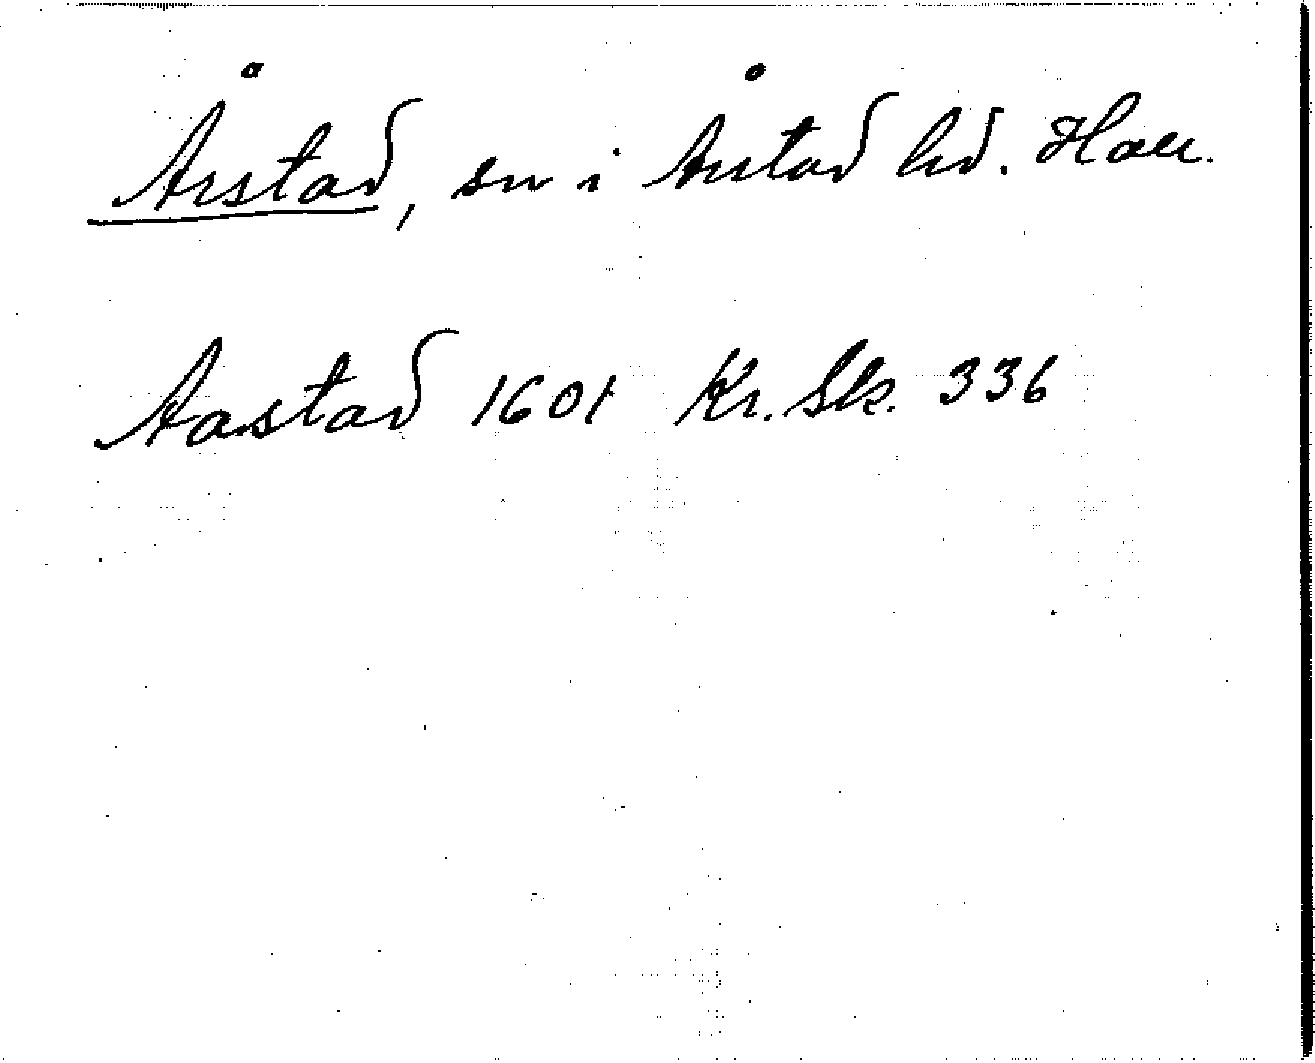 Årstad, sn i Årstad hd. Hall.
Aastad 1601 Kr. Sk. 336